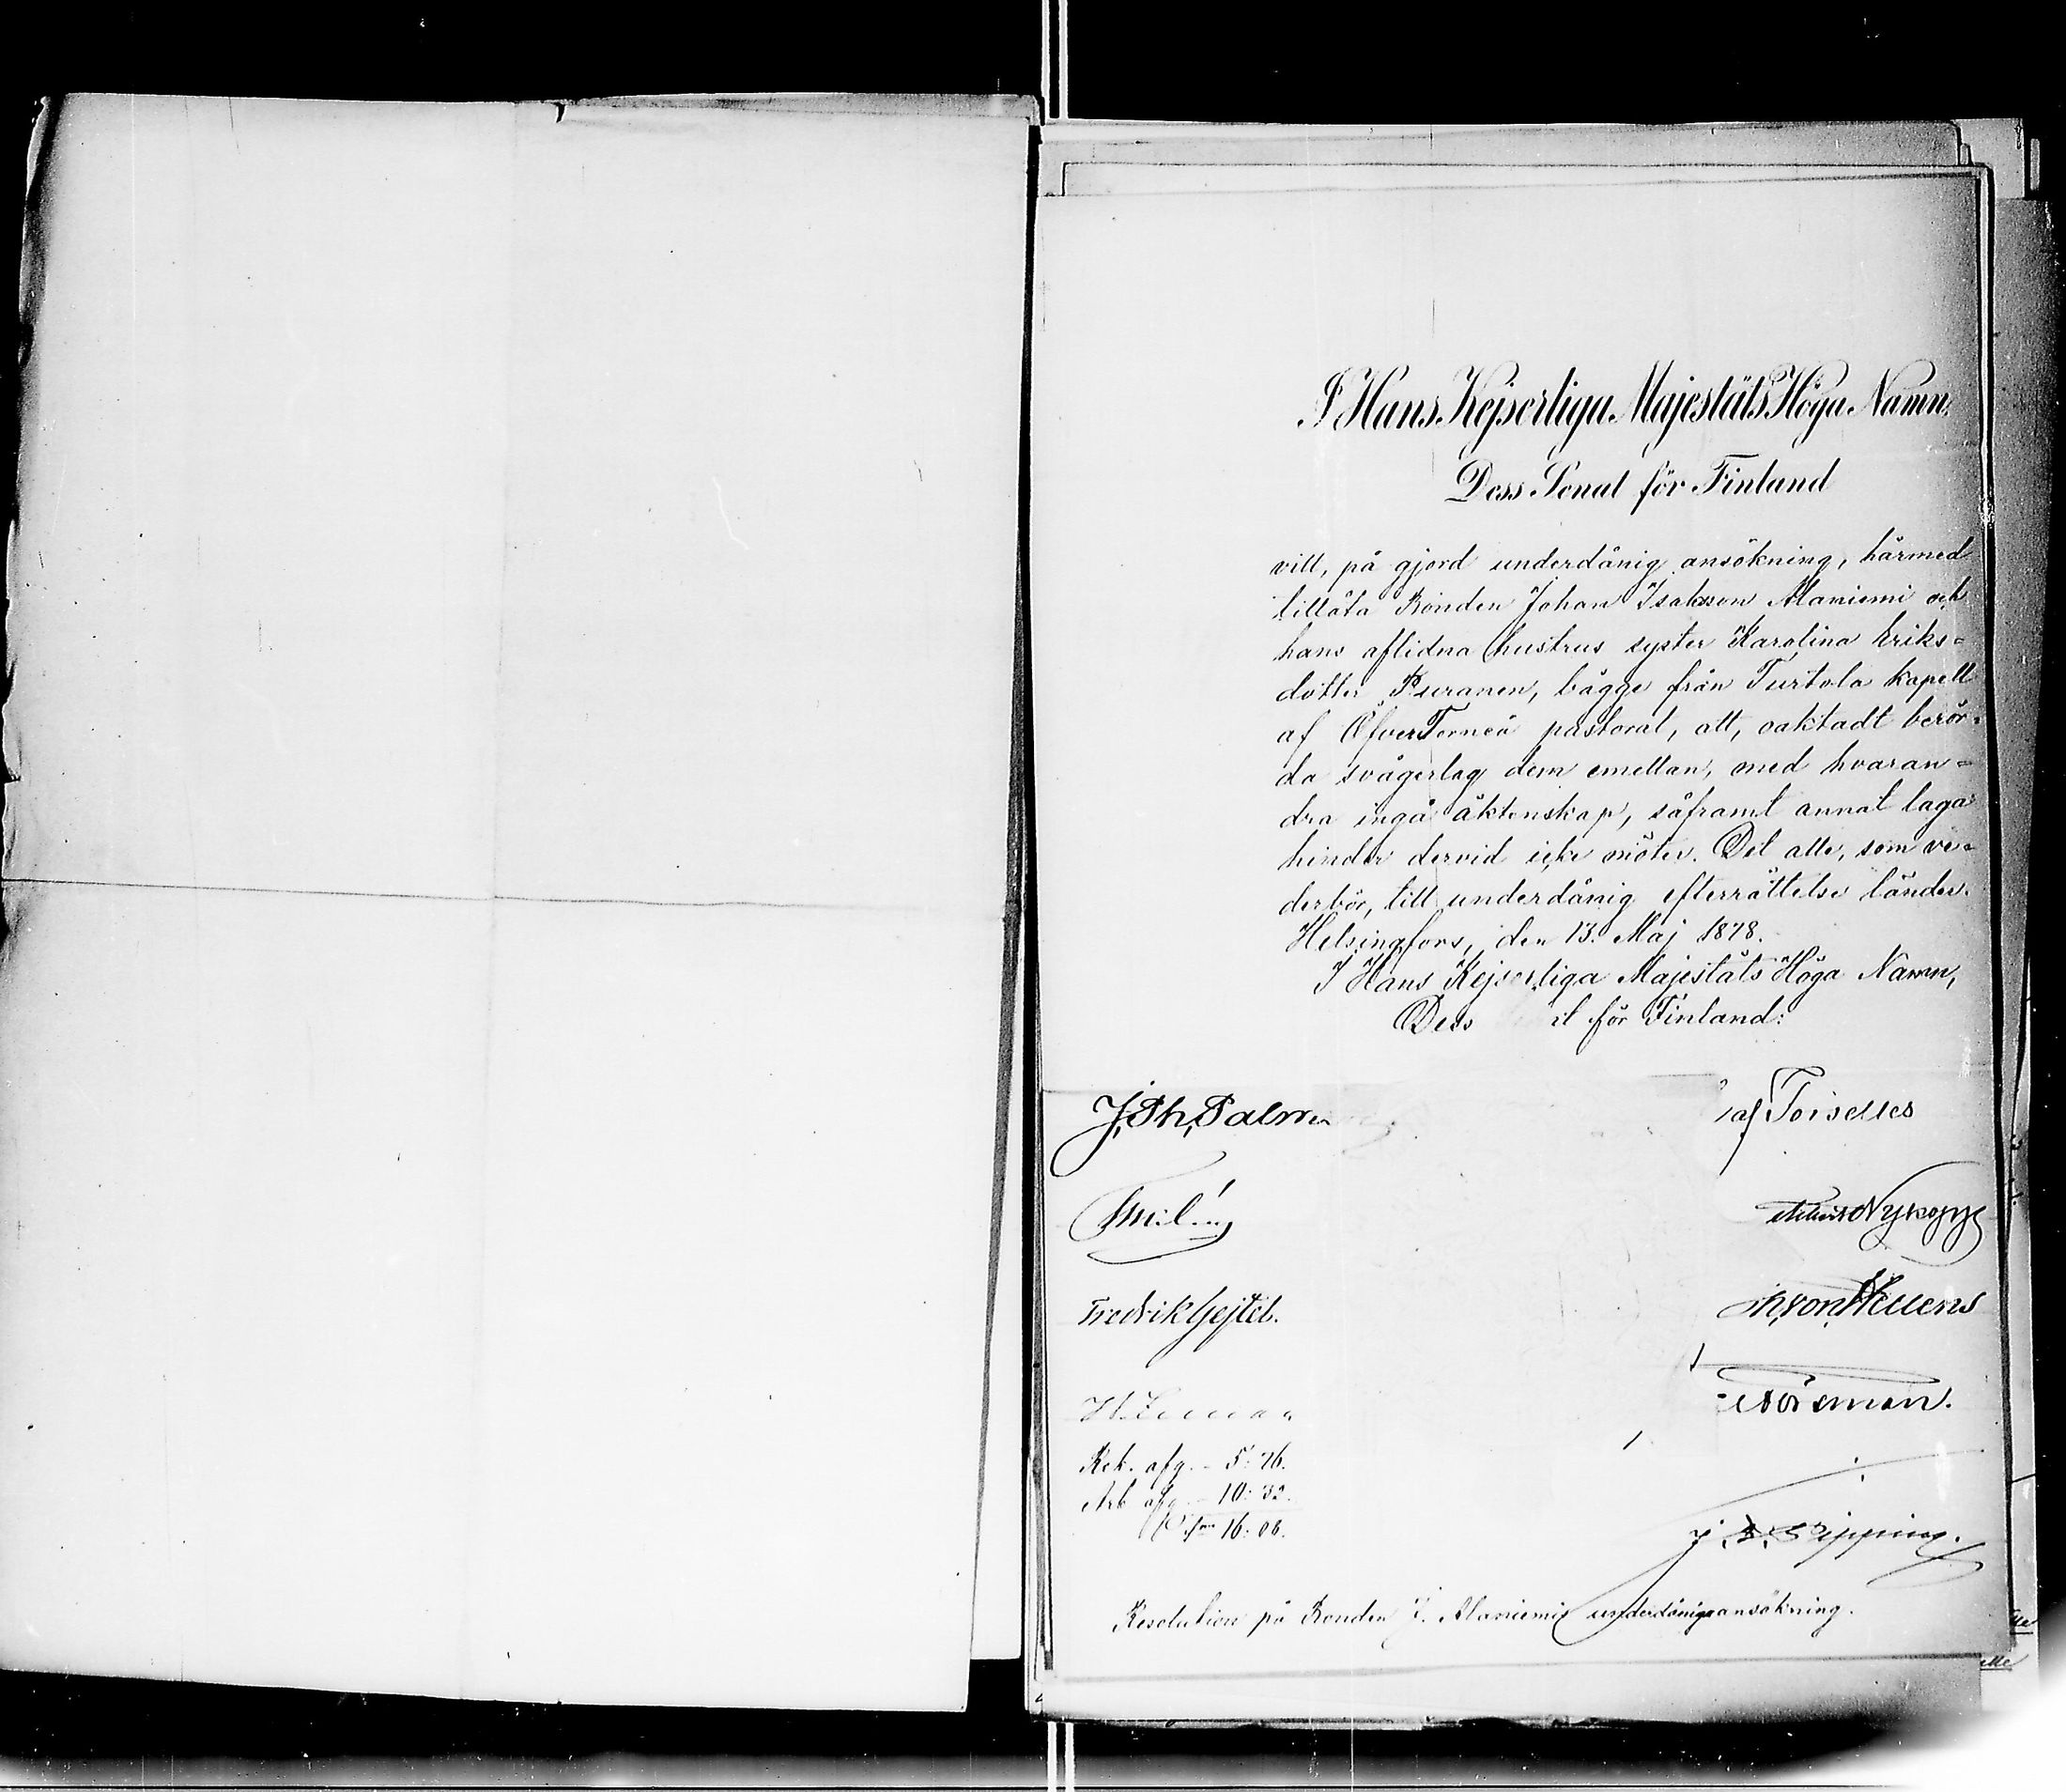 I Hans Kejserliga Majestäts Höga Namn,
Dess Senat för Finland
vill, på gjord underdånig ansökning, härmed
tillåta Bonden Johan Isaksson Alaniemi och
hans aflidna hustrus syster Karolina Eriks=
dotter Puranen, bägge från Turtola kapell
af ÖfverTorneå pastorat, att, oaktadt berör=
da svågerlag dem emellan, med hvaran=
dra ingå äktenskap, såframt annat laga
hinder dervid icke möter. Det alle, som ve=
derbör, till underdånig efterrättelse länder.
Helsingfors, den 13. Maj 1878.
I Hans Kejserliga Majestäts Höga Namn,
Dess t för Finland:
J, Ph, Palm
af Forselles
Nykopp
Fredrik Gejtel.
von Hellens
Norsman.
Rek. afg. - 5: 76.
Arb afg. - 10: 32.
16: 08.
Resolution på Bonden J. Alaniemis underdåniga ansökning.